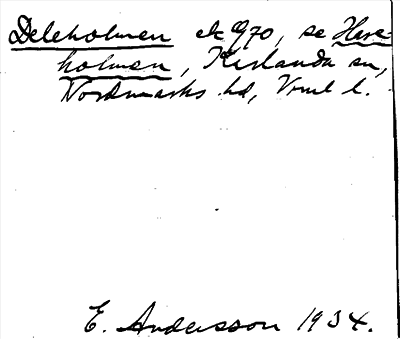 Deleholmen ek 970, se Hare-
holmen, Karlanda sn,
Nordmarks hd, Vrml l.
E. Andersson 1934.